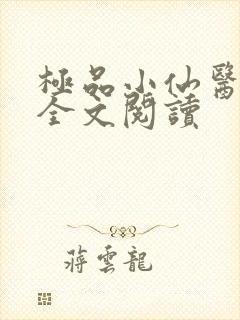 極品小仙醫
全文閱讀
蔣雲龍